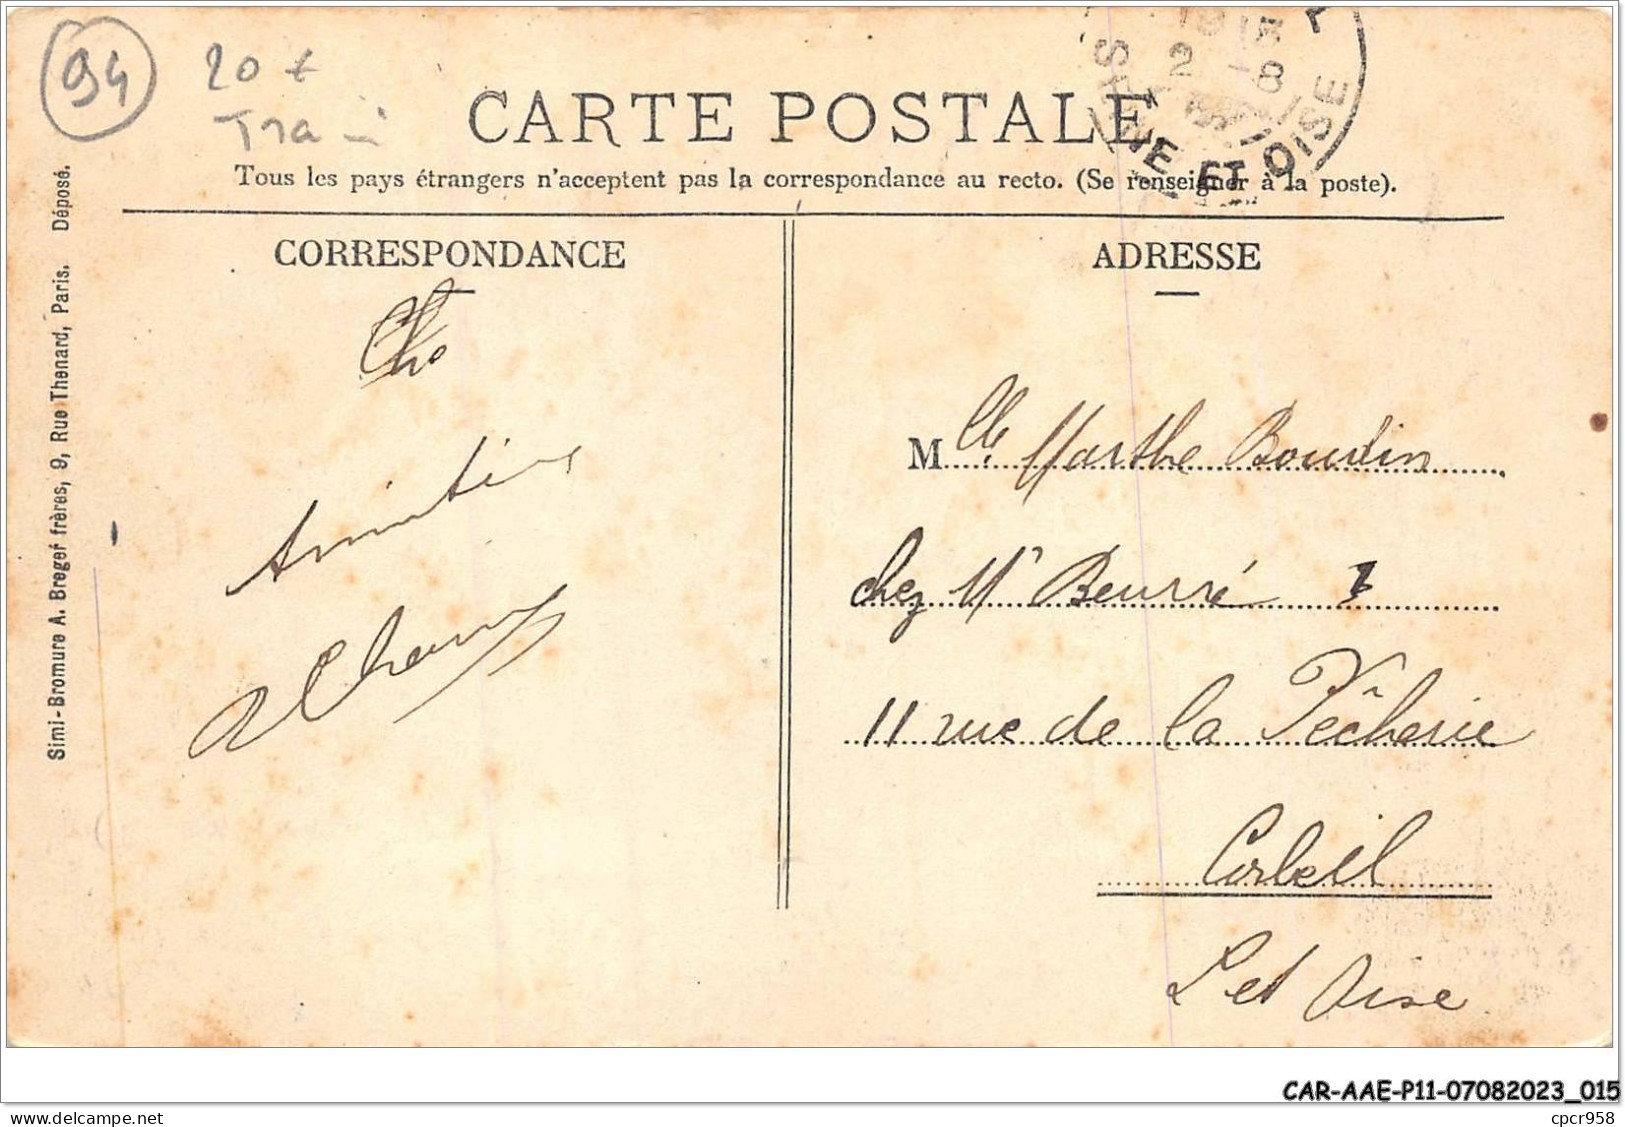 94
20 +
CARTE POSTALE
2 -8
ET OISE
Tous les pays étrangers n'acceptent pas la correspondance au recto. (Se renseigner à la poste).
Simi-Bromure A. Breger frères, 9, Rue Thenard, Paris. Déposé.
CORRESPONDANCE
Amitiés
ADRESSE
Mlle Marthe Boudin
chez Mr Beurré
11 rue de la Pêcherie
Corbeil
S et Oise
CAR-AAE-P11-07082023_015
Delcampe.net
cpcr958